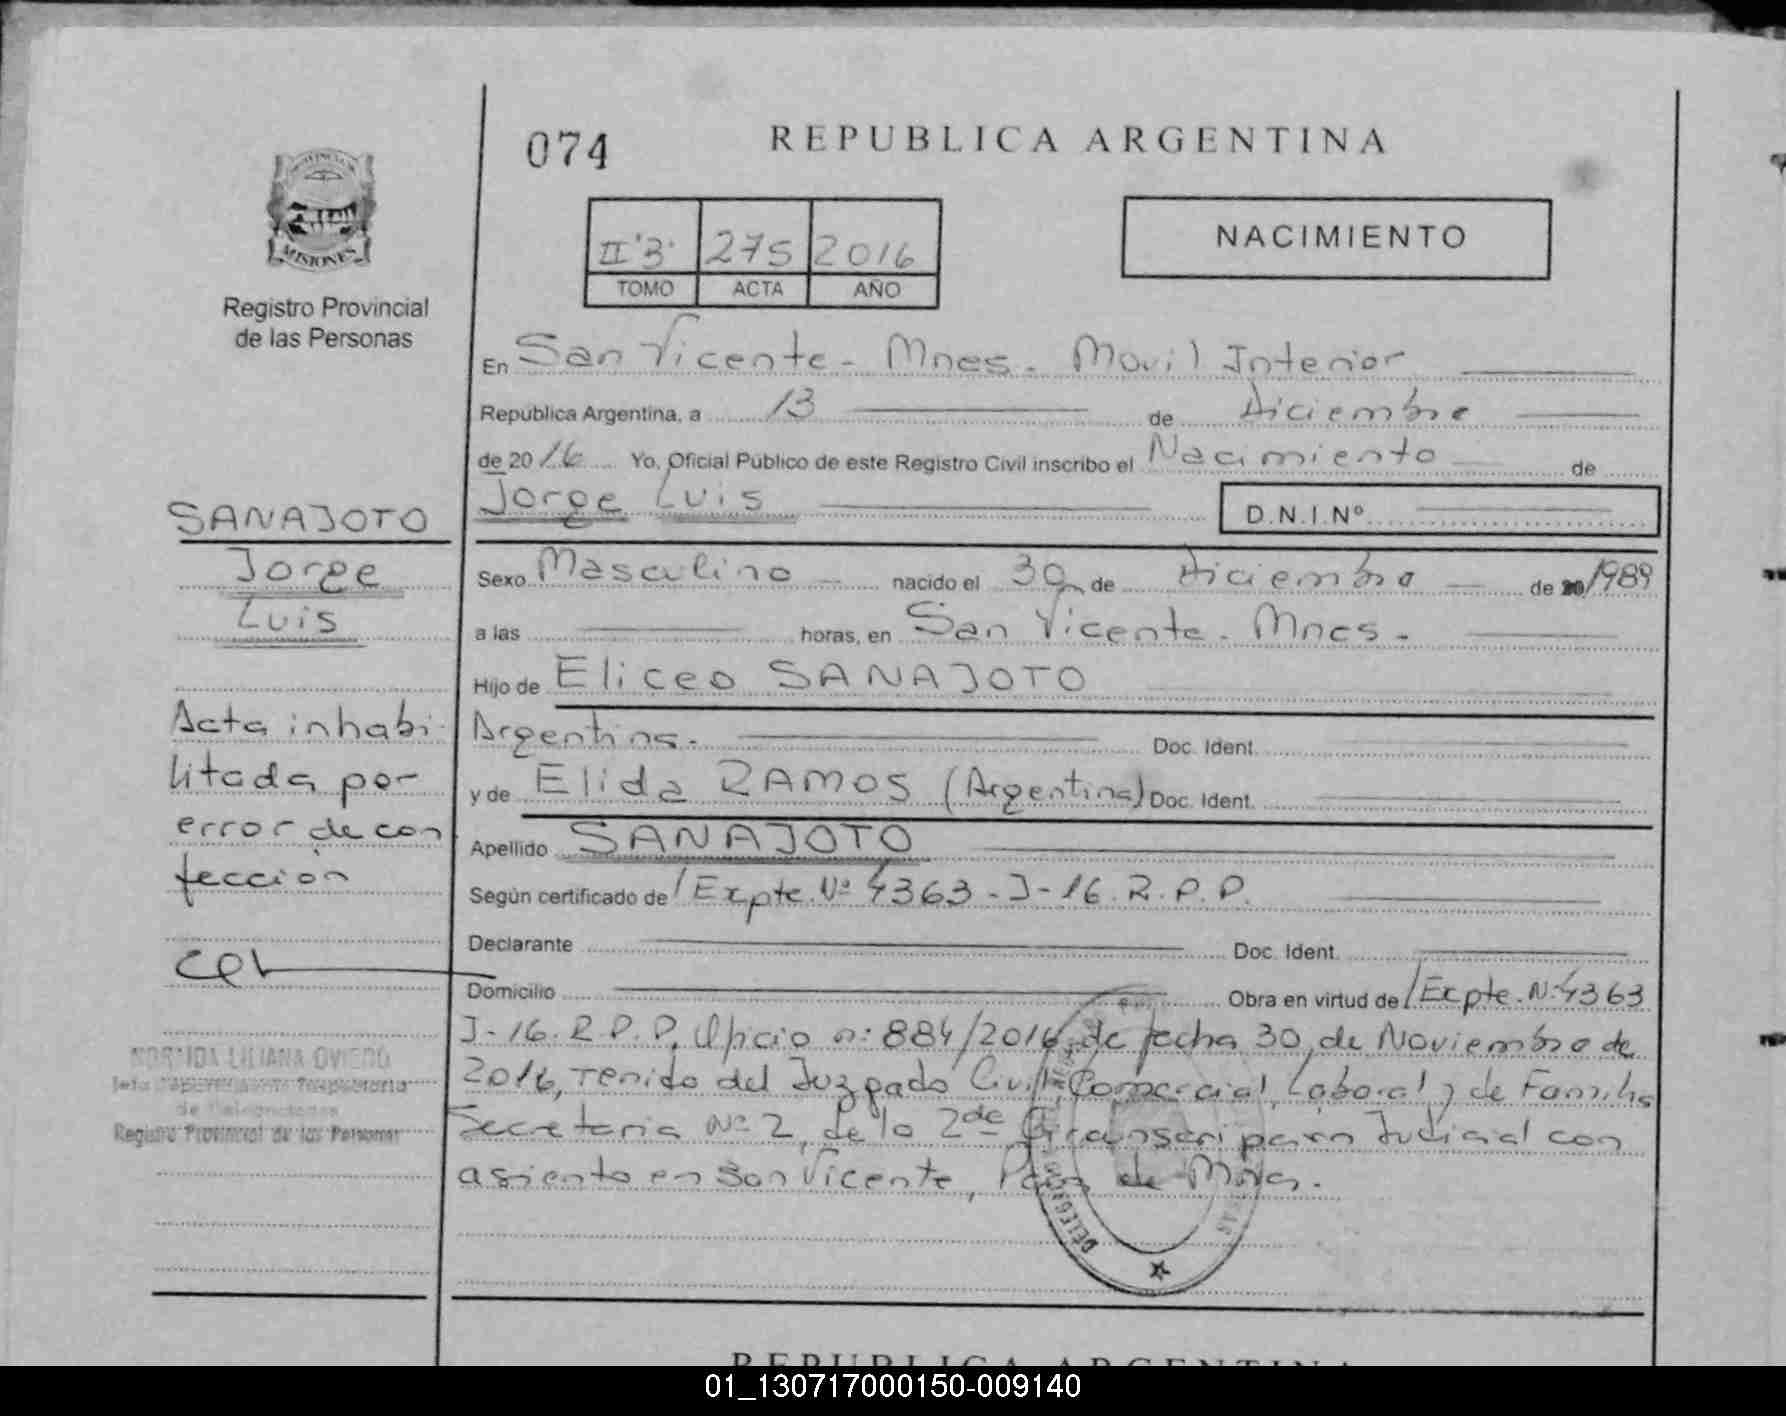 074
REPUBLICA ARGENTINA
MISIONES
Registro Provincial
de las Personas
II'3' 275 2016
TOMO ACTA AÑO
NACIMIENTO
En San Vicente - Mnes. Movil Interior
Republica Argentina, a 13 de Diciembre
de 20 16 Yo, Oficial Público de este Registro Civil inscribo el Nacimiento de
Jorge Luis D.N.I.Nº
SANAJOTO
Jorge
Luis
Sexo Masculino nacido el 30 de Diciembre de 20/1989
a las horas, en San Vicente - Mnes -
Hijo de Eliceo SANAJOTO
Argentina. Doc. Ident.
y de Elida RAMOS (Argentina) Doc. Ident.
Apellido SANAJOTO
Según certificado de / Expte. Nº 4363 - J - 16. R. P. P.
Declarante Doc. Ident.
Domicilio Obra en virtud de / Expte. Nº 4363
J - 16. R. P. P, Oficio nº 884/2016, de fecha 30, de Noviembre de
2016, Tenido del Juzgado Civil, Comercial, Laboral y de Familia
Secretaria Nº 2, de la 2da Circunscripción Judicial con
asiento en San Vicente, Pcia de Mnes.
Acta inhabi-
litada por
error de con
fección
NORMIDA LILIANA OVIEDO
Registro Provincial de las Personas
REPUBLICA ARGENTINA
01_130717000150-009140